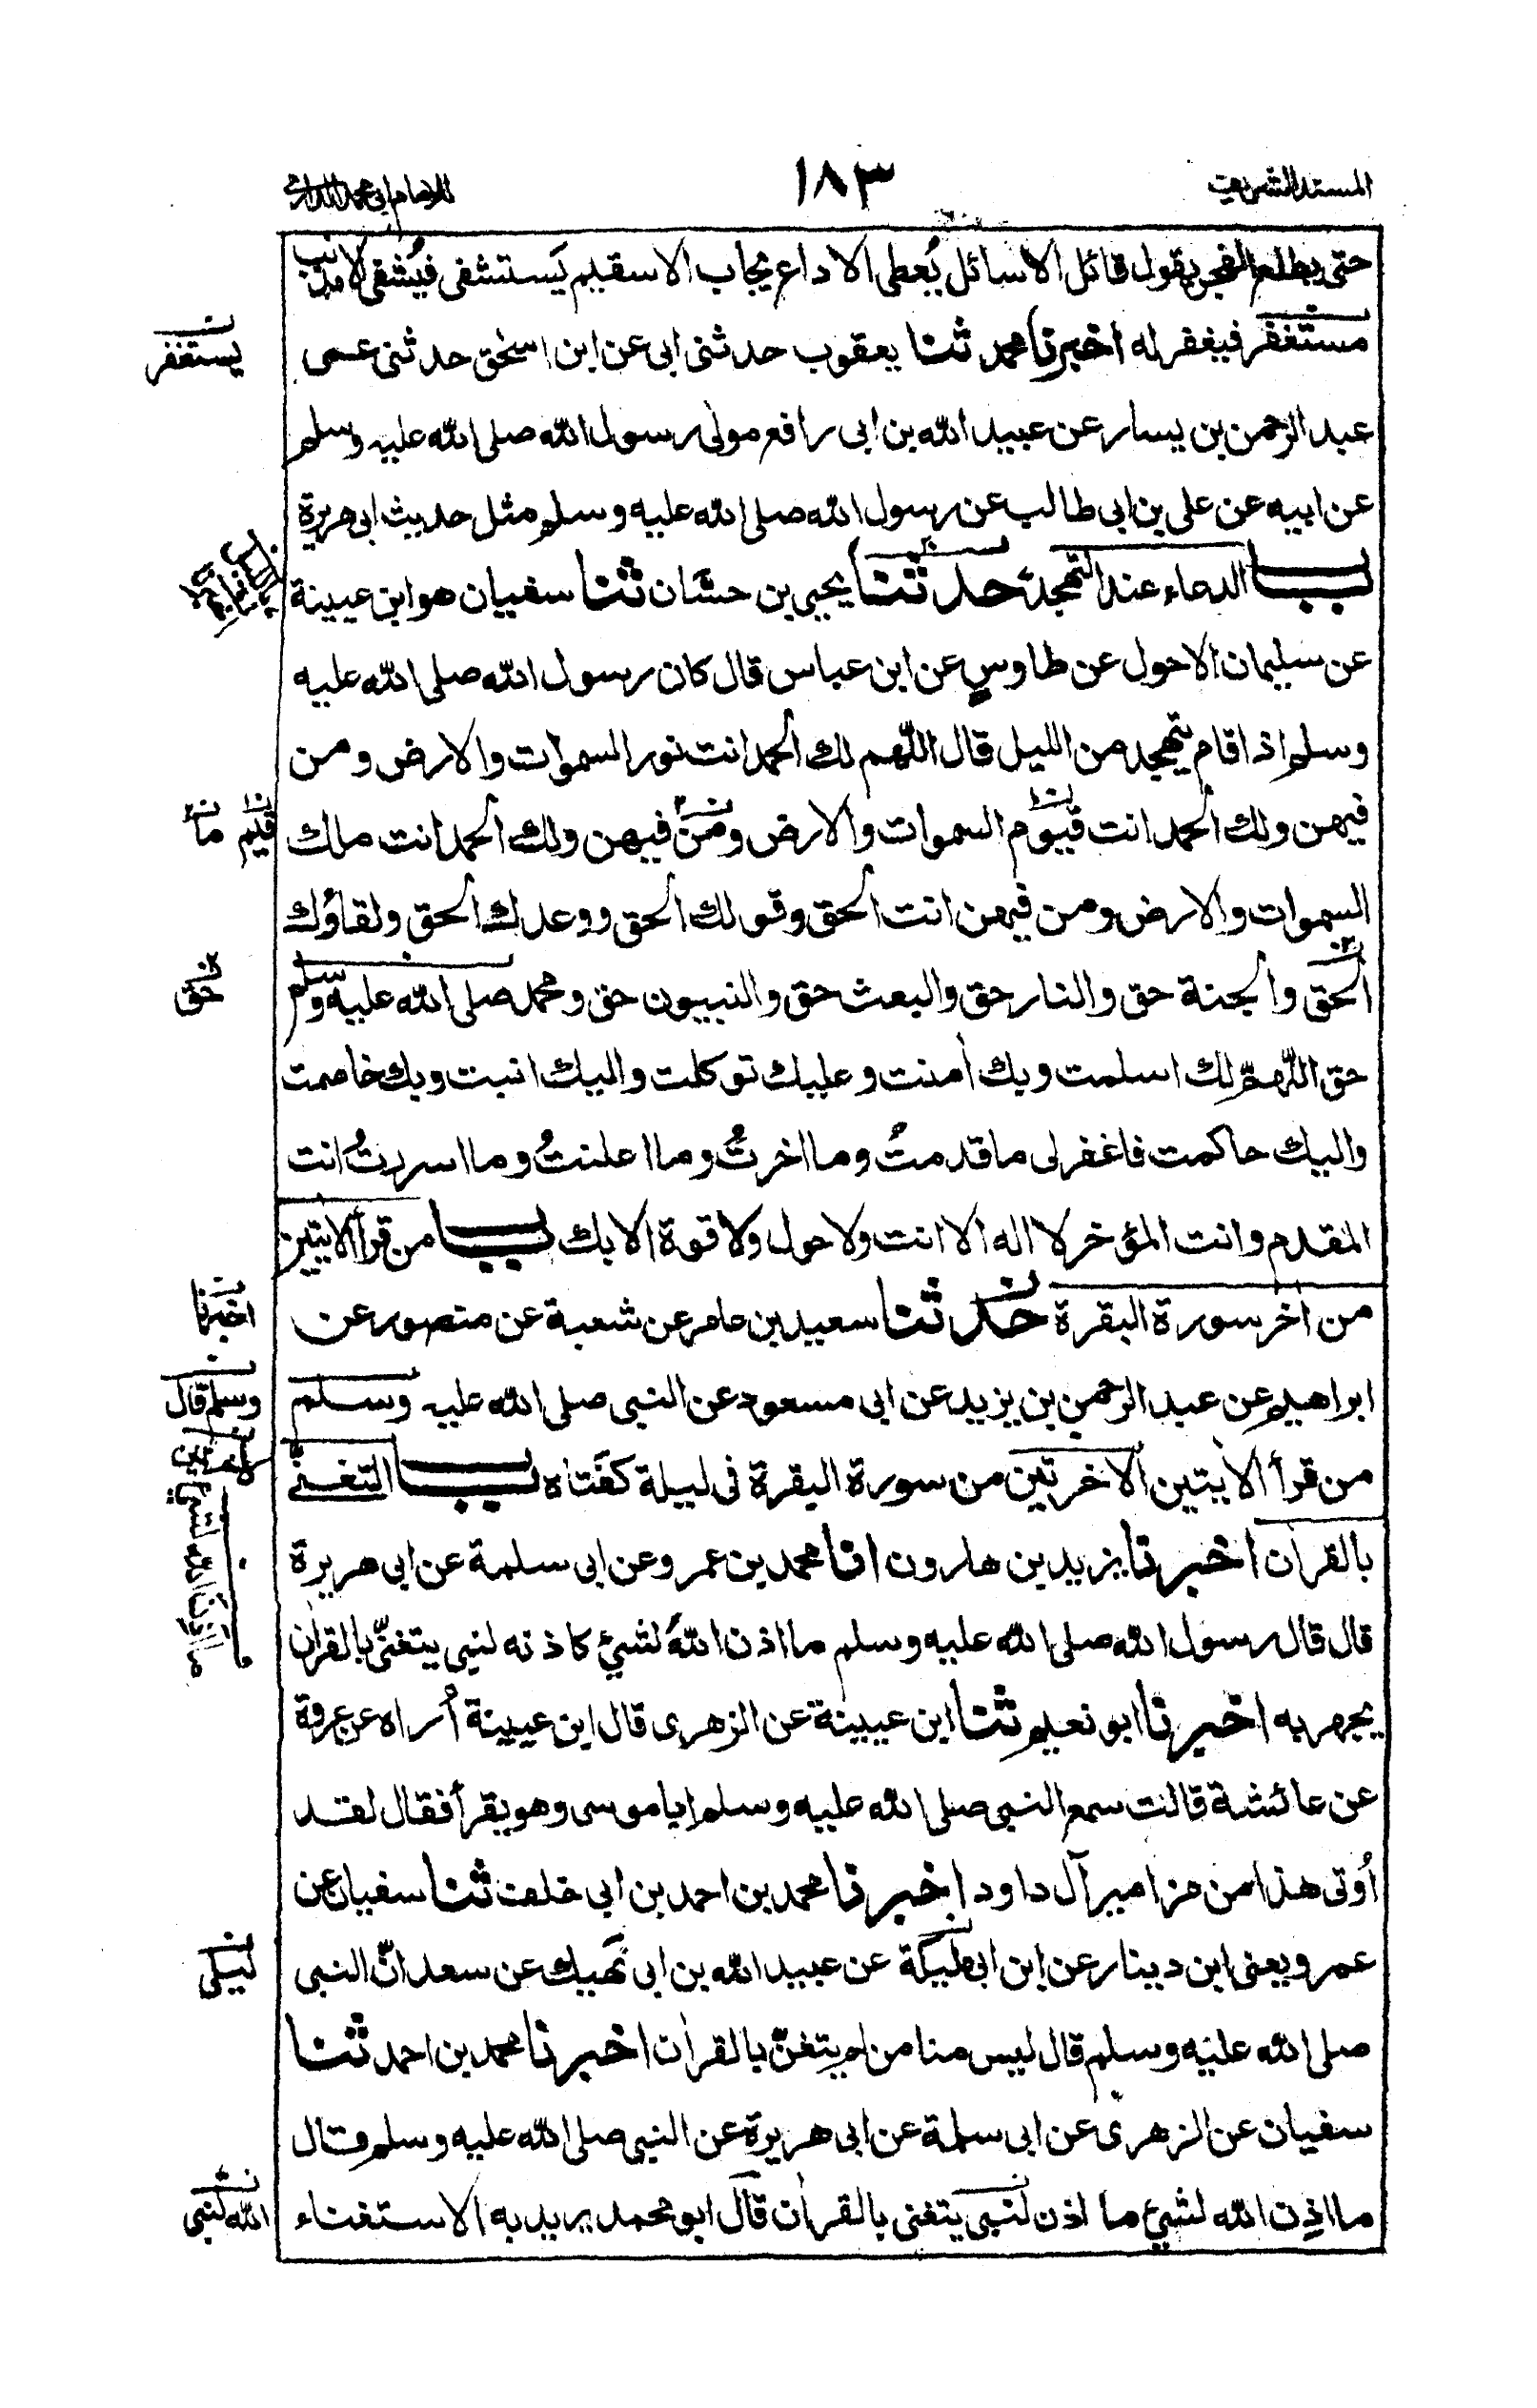 المسند الشريف
١٨٣
للامام ابى محمد الدارمى
حتى يطلع الفجر يقول قائل الا سائل يُعطى الا داع يجاب الا سقيم يَستشفى فيُشفى الا مذنب
مستغفر فيغفر له اخبرنا محمد ثنا يعقوب حدثنى ابى عن ابن اسحٰق حدثنى عمى
يستغفر
عبد الرحمن بن يسار عن عبيد الله بن ابى رافع مولى رسول الله صلى الله عليه وسلم
عن ابيه عن على بن ابى طالب عن رسول الله صلى الله عليه وسلم مثل حديث ابى هريرة
باب الدعاء عند التهجد حدثنا يحيى بن حسّان ثنا سفيان هو ابن عيينة
عن سليمان الاحول عن طاوسٍ عن ابن عباس قال كان رسول الله صلى الله عليه
وسلم اذا قام يتهجد من الليل قال اللّٰهم لك الحمد انت نور السموات والارض ومن
فيهن ولك الحمد انت قيوم السموات والارض ومن فيهن ولك الحمد انت ملك
قيم ما
السموات والارض ومن فيهن انت الحق وقولك الحق ووعدك الحق ولقاؤك
الحق والجنة حق والنار حق والبعث حق والنبيون حق ومحمد صلى الله عليه وسلم
حق
حق اللّٰهمّ لك اسلمت وبك اٰمنت وعليك توكلت واليك انبت وبك خاصمت
واليك حاكمت فاغفر لى ما قدمتُ وما اخرتُ وما اعلنتُ وما اسررتُ انت
المقدم وانت المؤخر لا اله الا انت ولا حول ولا قوة الا بك باب من قرأ الايتين
من اٰخر سورة البقرة حدثنا سعيد بن عامر عن شعبة عن منصور عن
اخبرنا
ابراهيم عن عبد الرحمن بن يزيد عن ابى مسعود عن النبى صلى الله عليه وسلم
وسلم قال
من قرأ الاٰيتين الاٰخرتين من سورة البقرة فى ليلة كفَتاه باب التغنّى
بالقراٰن اخبرنا يزيد بن هارون انا محمد بن عمرو عن ابى سلمة عن ابى هريرة
قال قال رسول الله صلى الله عليه وسلم ما اذن اللهُ لشيئ كاذنه لنبى يتغنّى بالقراٰن
ما اذن الله لشئ
يجهر به اخبرنا ابو نعيم ثنا ابن عيينة عن الزهرى قال ابن عيينة أُراه عن عروة
عن عائشة قالت سمع النبى صلى الله عليه وسلم ابا موسى وهو يقرأ فقال لقد
اُوتى هذا من مزامير آل داود اخبرنا محمد بن احمد بن ابى خلف ثنا سفيان عن
عمرو يعنى ابن دينار عن ابن ابى مليكة عن عبيد الله بن ابى نَهيك عن سعد انّ النبى
صلى الله عليه وسلم قال ليس منا من لم يتغنّ بالقراٰن اخبرنا محمد بن احمد ثنا
سفيان عن الزهرى عن ابى سلمة عن ابى هريرة عن النبى صلى الله عليه وسلم قال
ما اذِن الله لشيئ ما اذن لنبى يتغنى بالقراٰن قال ابو محمد يريد به الاستغناء
الله لنبى